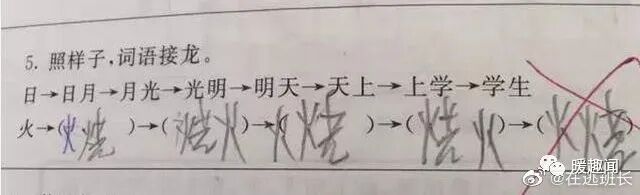 5. 照样子,词语接龙。
日→日月→月光→光明→明天→天上→上学→学生
火→(火烧)→(烧火)→(火烧)→(烧火)→(火烧
暖趣闻
@在逃班长